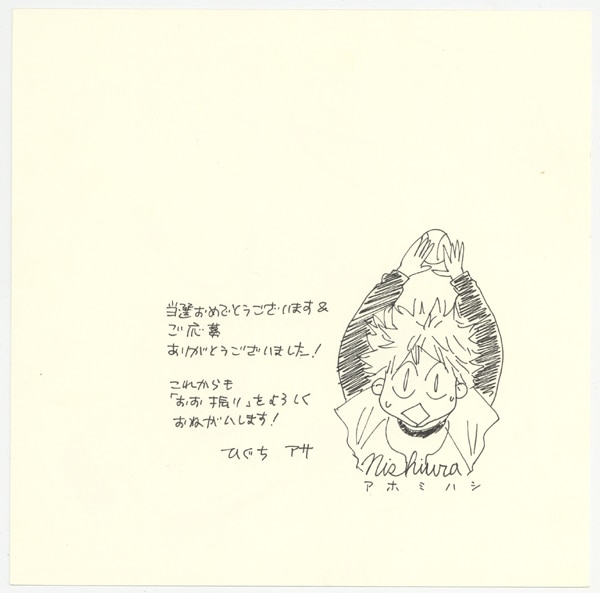 当選おめでとうございます&
ご応募
ありがとうございました!
これからも
「おお振り」をよろしく
おねがいします!
ひぐち アサ
Nishiura
アホミハシ